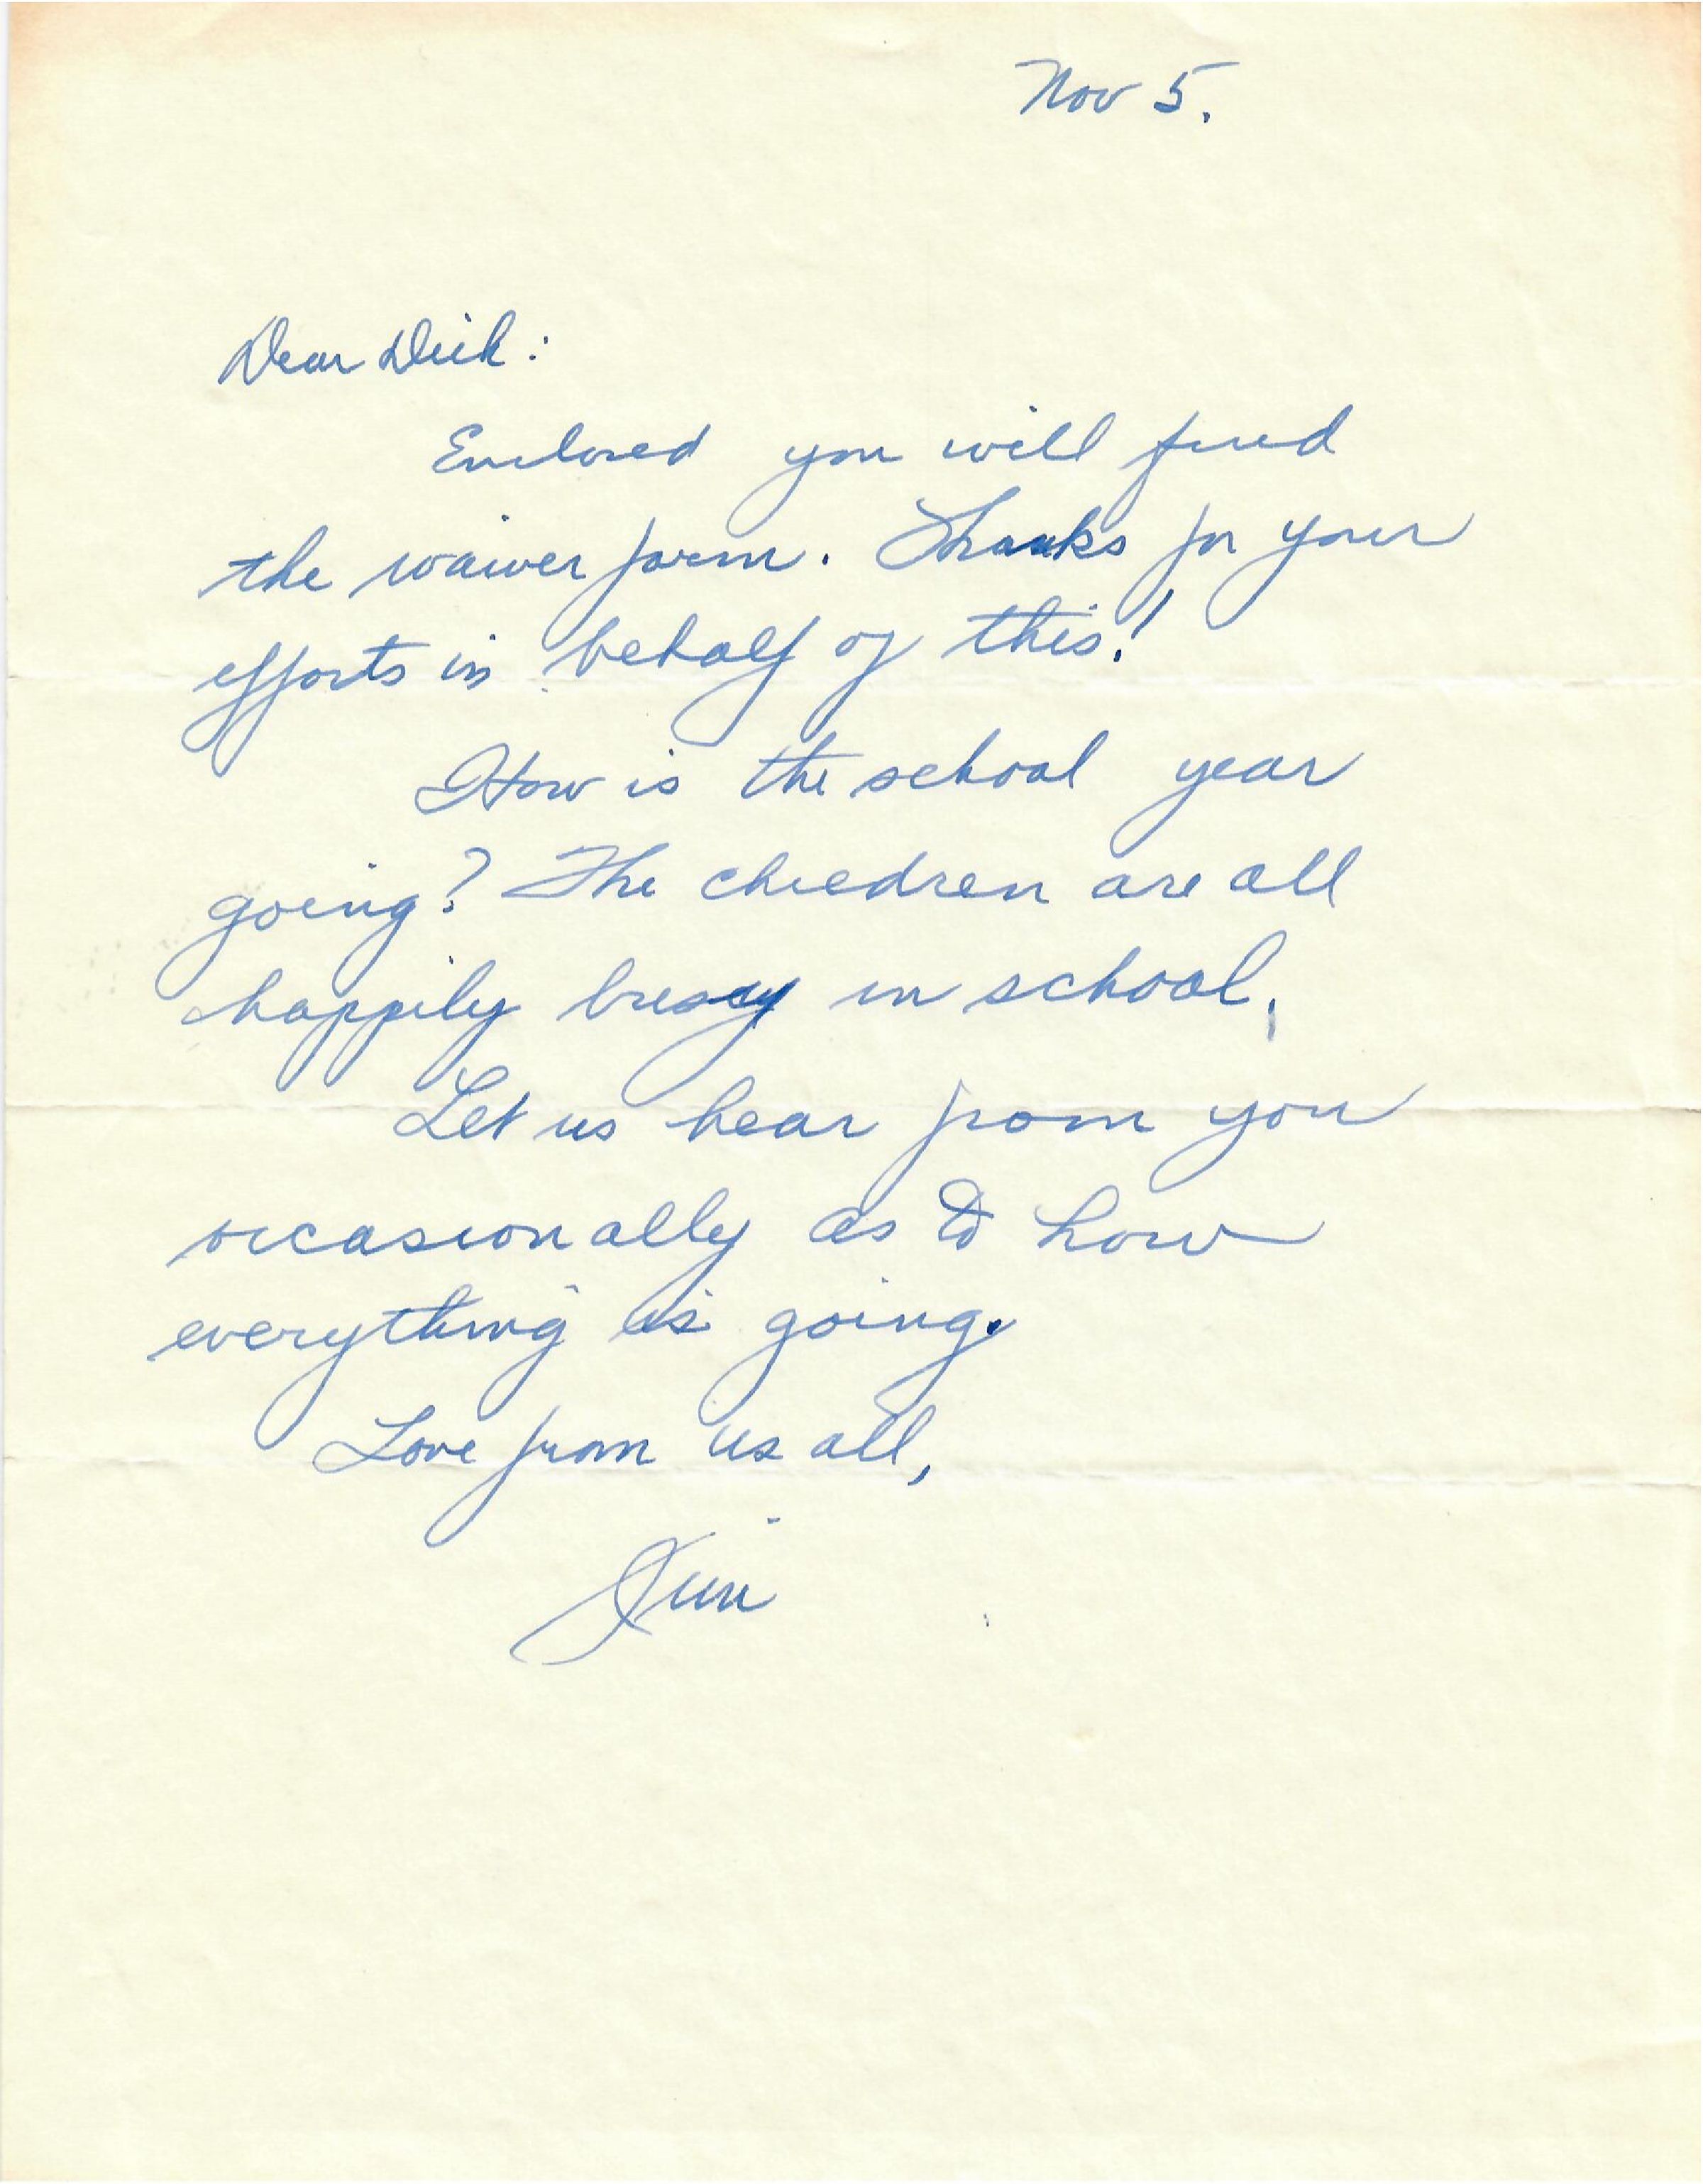 Nov 5.
Dear Dick:
Enclosed you will find
the waiver form. Thanks for your
efforts in behalf of this!
How is the school year
going? The children are all
happily busy in school.
Let us hear from you
occasionally as to how
everything is going.
Love from us all,
Jim